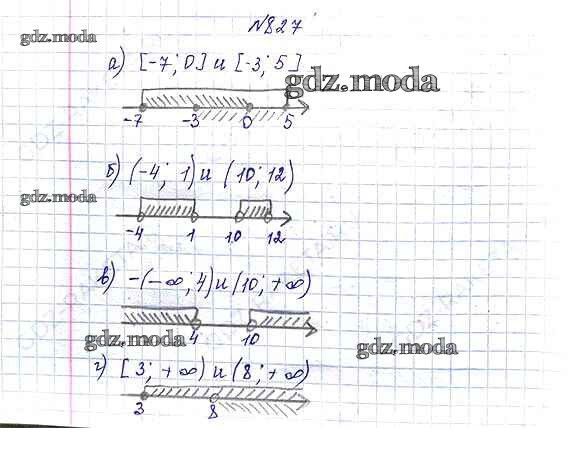 №827
gdz.moda
а) [-7; 0] и [-3; 5]
gdz.moda
-7 -3 0 5
б) (-4; 1) и (10; 12)
gdz.moda
-4 1 10 12
в) -(-∞; 4) и (10; +∞)
4 10
gdz.moda
gdz.moda
г) [3; +∞) и (8; +∞)
3 8